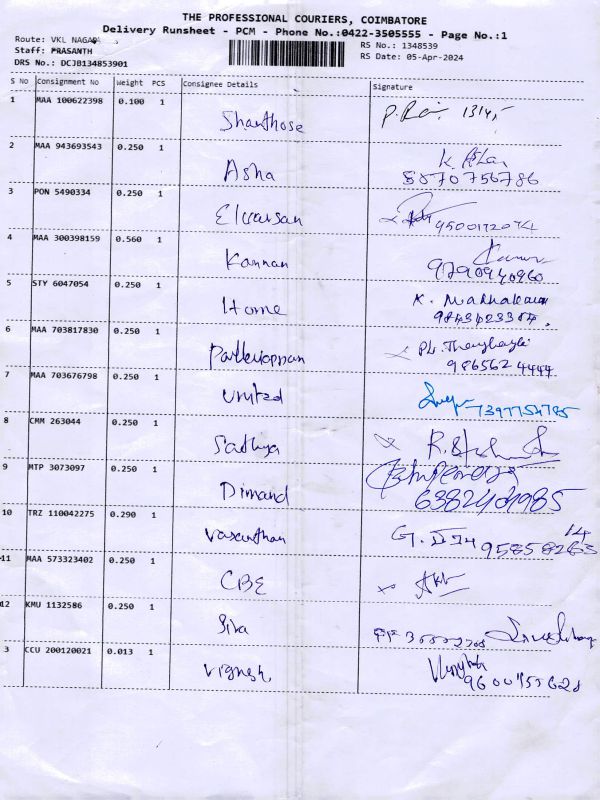 THE PROFESSIONAL COURIERS, COIMBATORE
Delivery Runsheet - PCM - Phone No.:0422-3505555 - Page No.:1
Route: VKL NAGAR
Staff: PRASANTH
DRS No.: DCJB134853901
RS No.: 1348539
RS Date: 05-Apr-2024
S No Consignment No Weight PCS Consignee Details Signature
1 MAA 100622398 0.100 1
Shanthose
2 MAA 943693543 0.250 1
Asha 8870756786
3 PON 5490334 0.250 1
4 MAA 300398159 0.560 1
Kannan 9790940960
5 STY 6047054 0.250 1
Home
6 MAA 703817830 0.250 1
9865624444
7 MAA 703676798 0.250 1
United 7397754785
8 CMM 263044 0.250 1
Sathya
9 MTP 3073097 0.250 1
Dimand
10 TRZ 110042275 0.290 1
Vasanthan
11 MAA 573323402 0.250 1
CBE
12 KMU 1132586 0.250 1
Siva
3 CCU 200120021 0.013 1
Vignesh